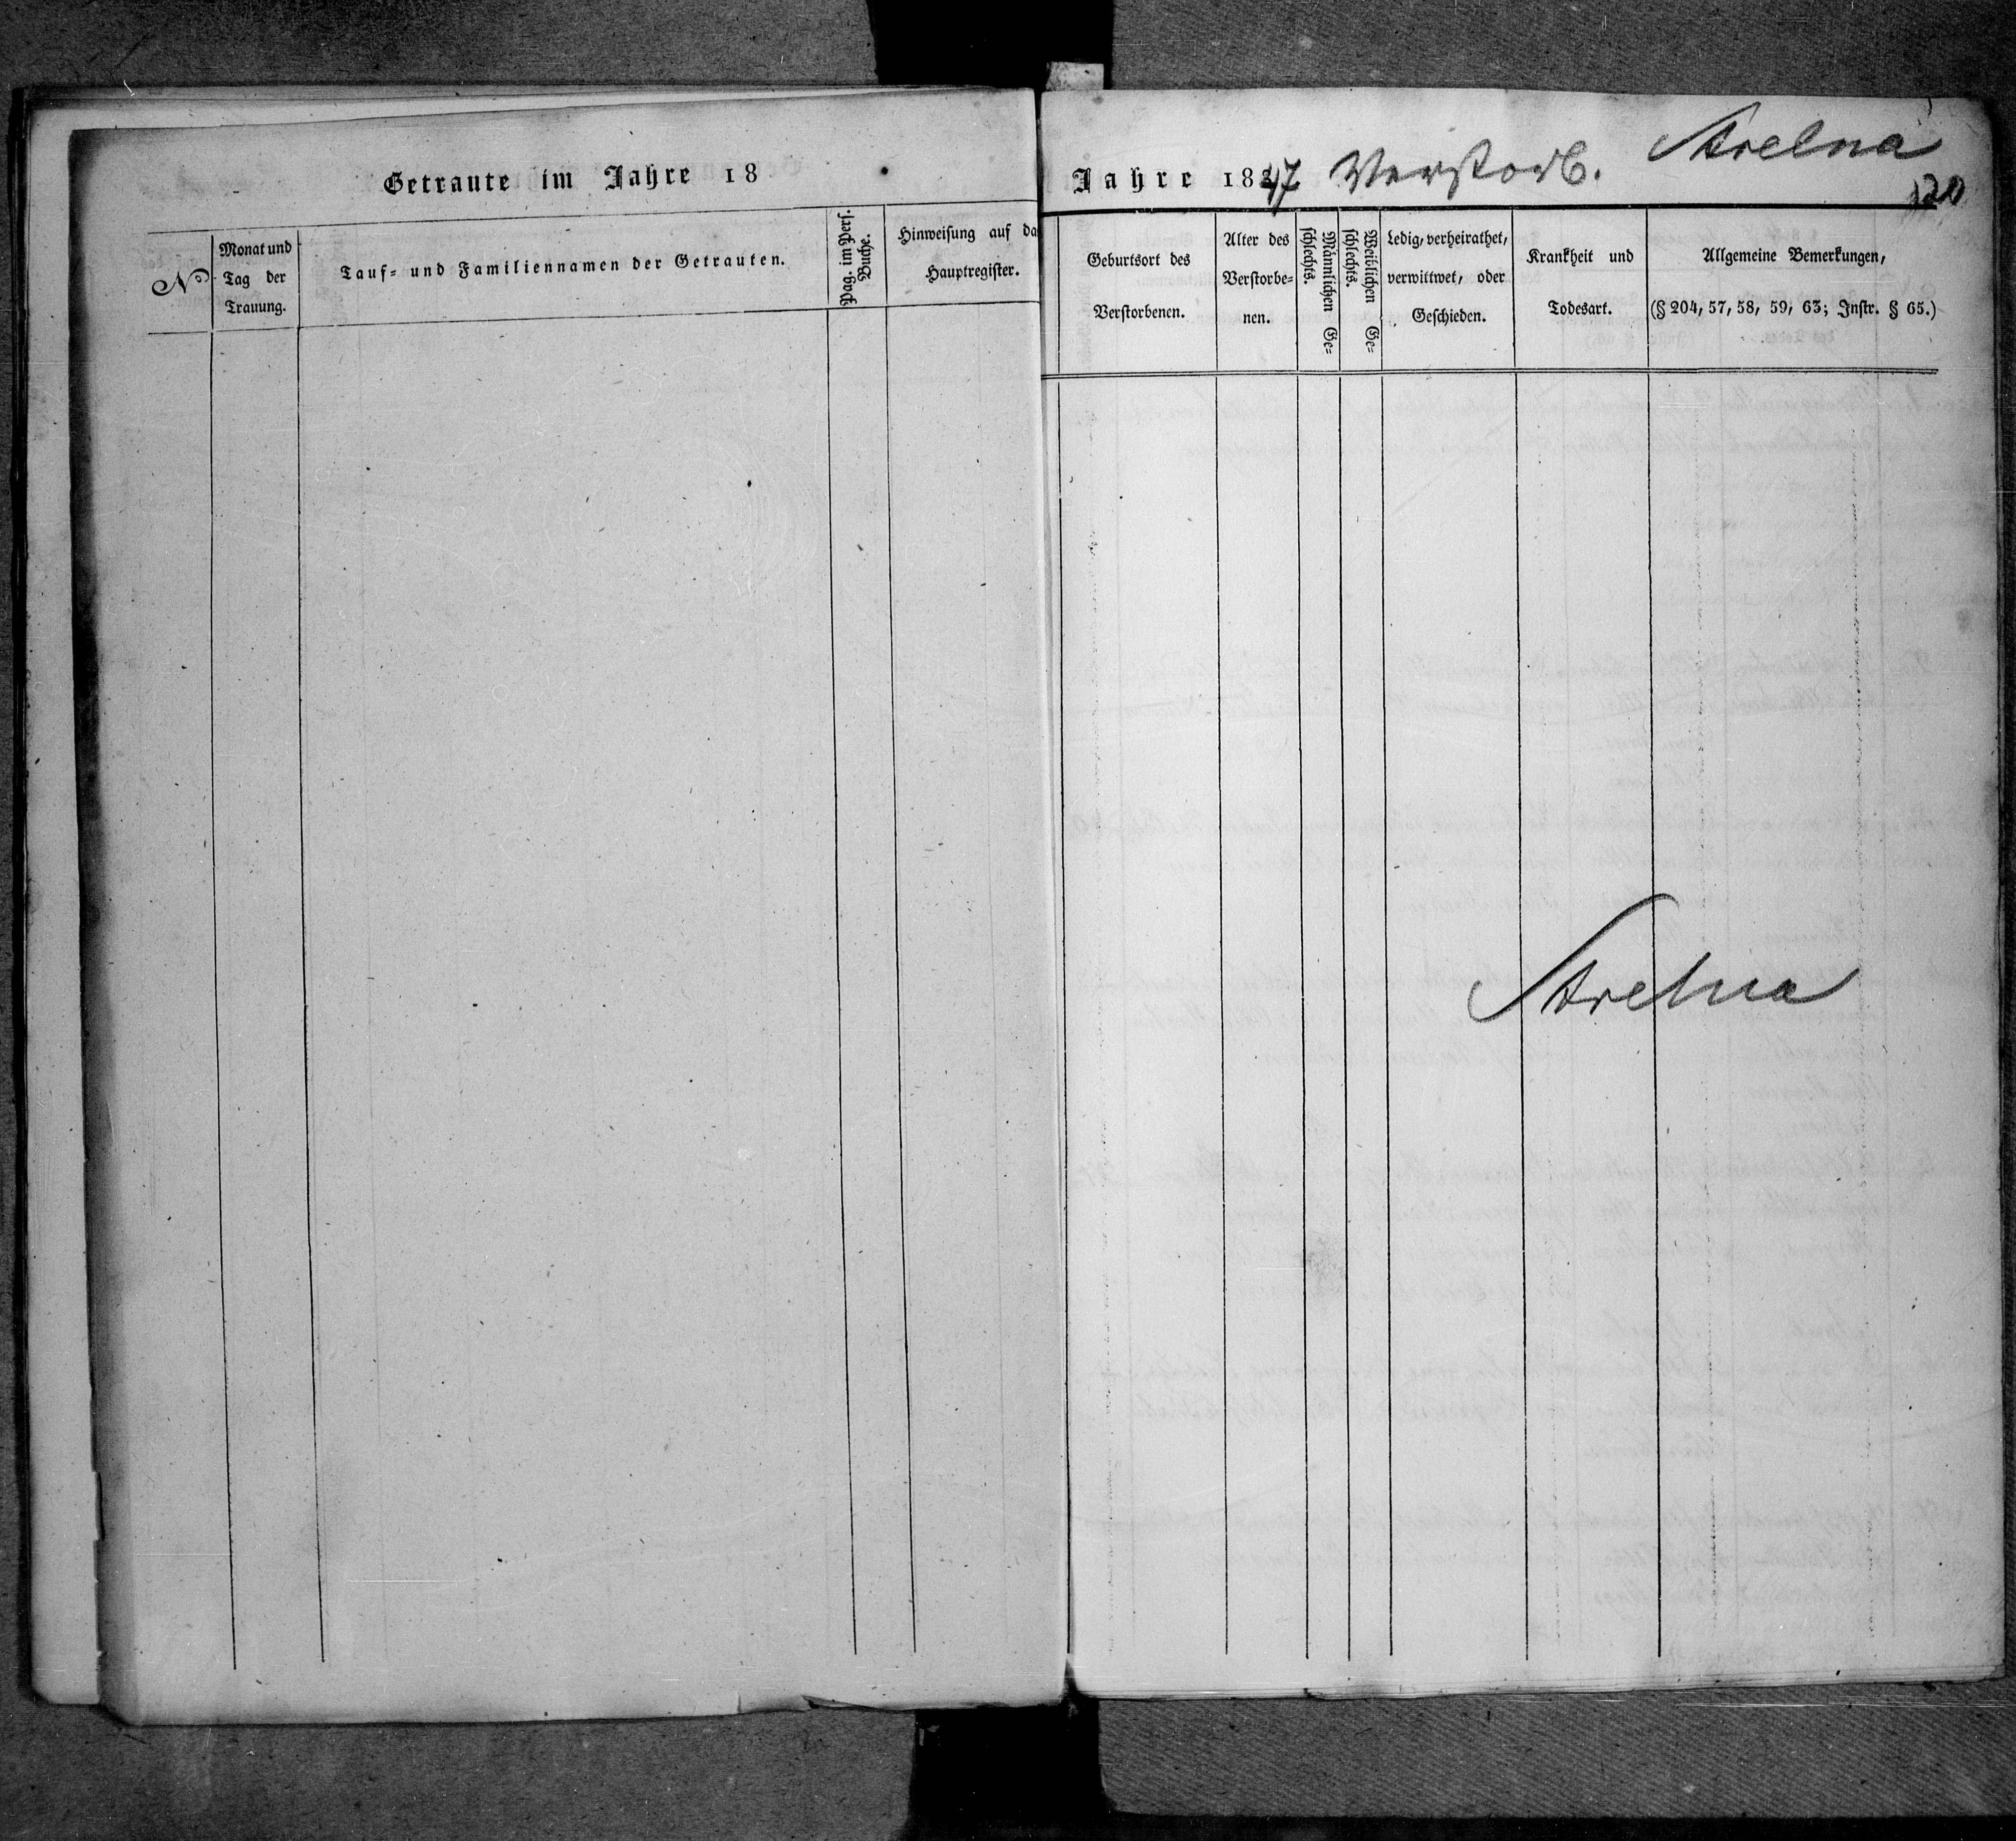 Getraute im Jahre 18
№
Monat und
Tag der
Trauung.
Tauf- und Familiennamen der Getrauten.
Pag. im Pers.
Buche.
Hinweisung auf da
Hauptregister.
Jahre 1847 Verstorb. Strelna
120
Geburtsort des
Verstorbenen.
Alter des
Verstorbe-
nen.
Männlichen Ge-
schlechts.
Weiblichen Ge-
schlechts.
Ledig, verheirathet,
verwittwet, oder
Geschieden.
Krankheit und
Todesart.
Allgemeine Bemerkungen,
(§ 204, 57, 58, 59, 63; Instr. § 65.)
Strelna